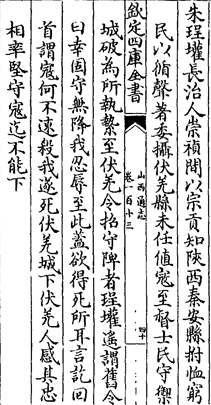 朱珵壦長治人崇禎間以宗貢知陜西秦安縣拊恤窮
欽定四庫全書
山西通志
卷一百十三
四十
民以循聲著委攝伏羌縣未任值寇至督士民守禦
城破為所執縶至伏羌令招守陴者珵壦遙謂舊令
曰幸固守無降我忍辱至此蓋欲得死所耳言訖回
首謂寇何不速殺我遂死伏羌城下伏羌人感其忠
相率堅守寇迄不能下